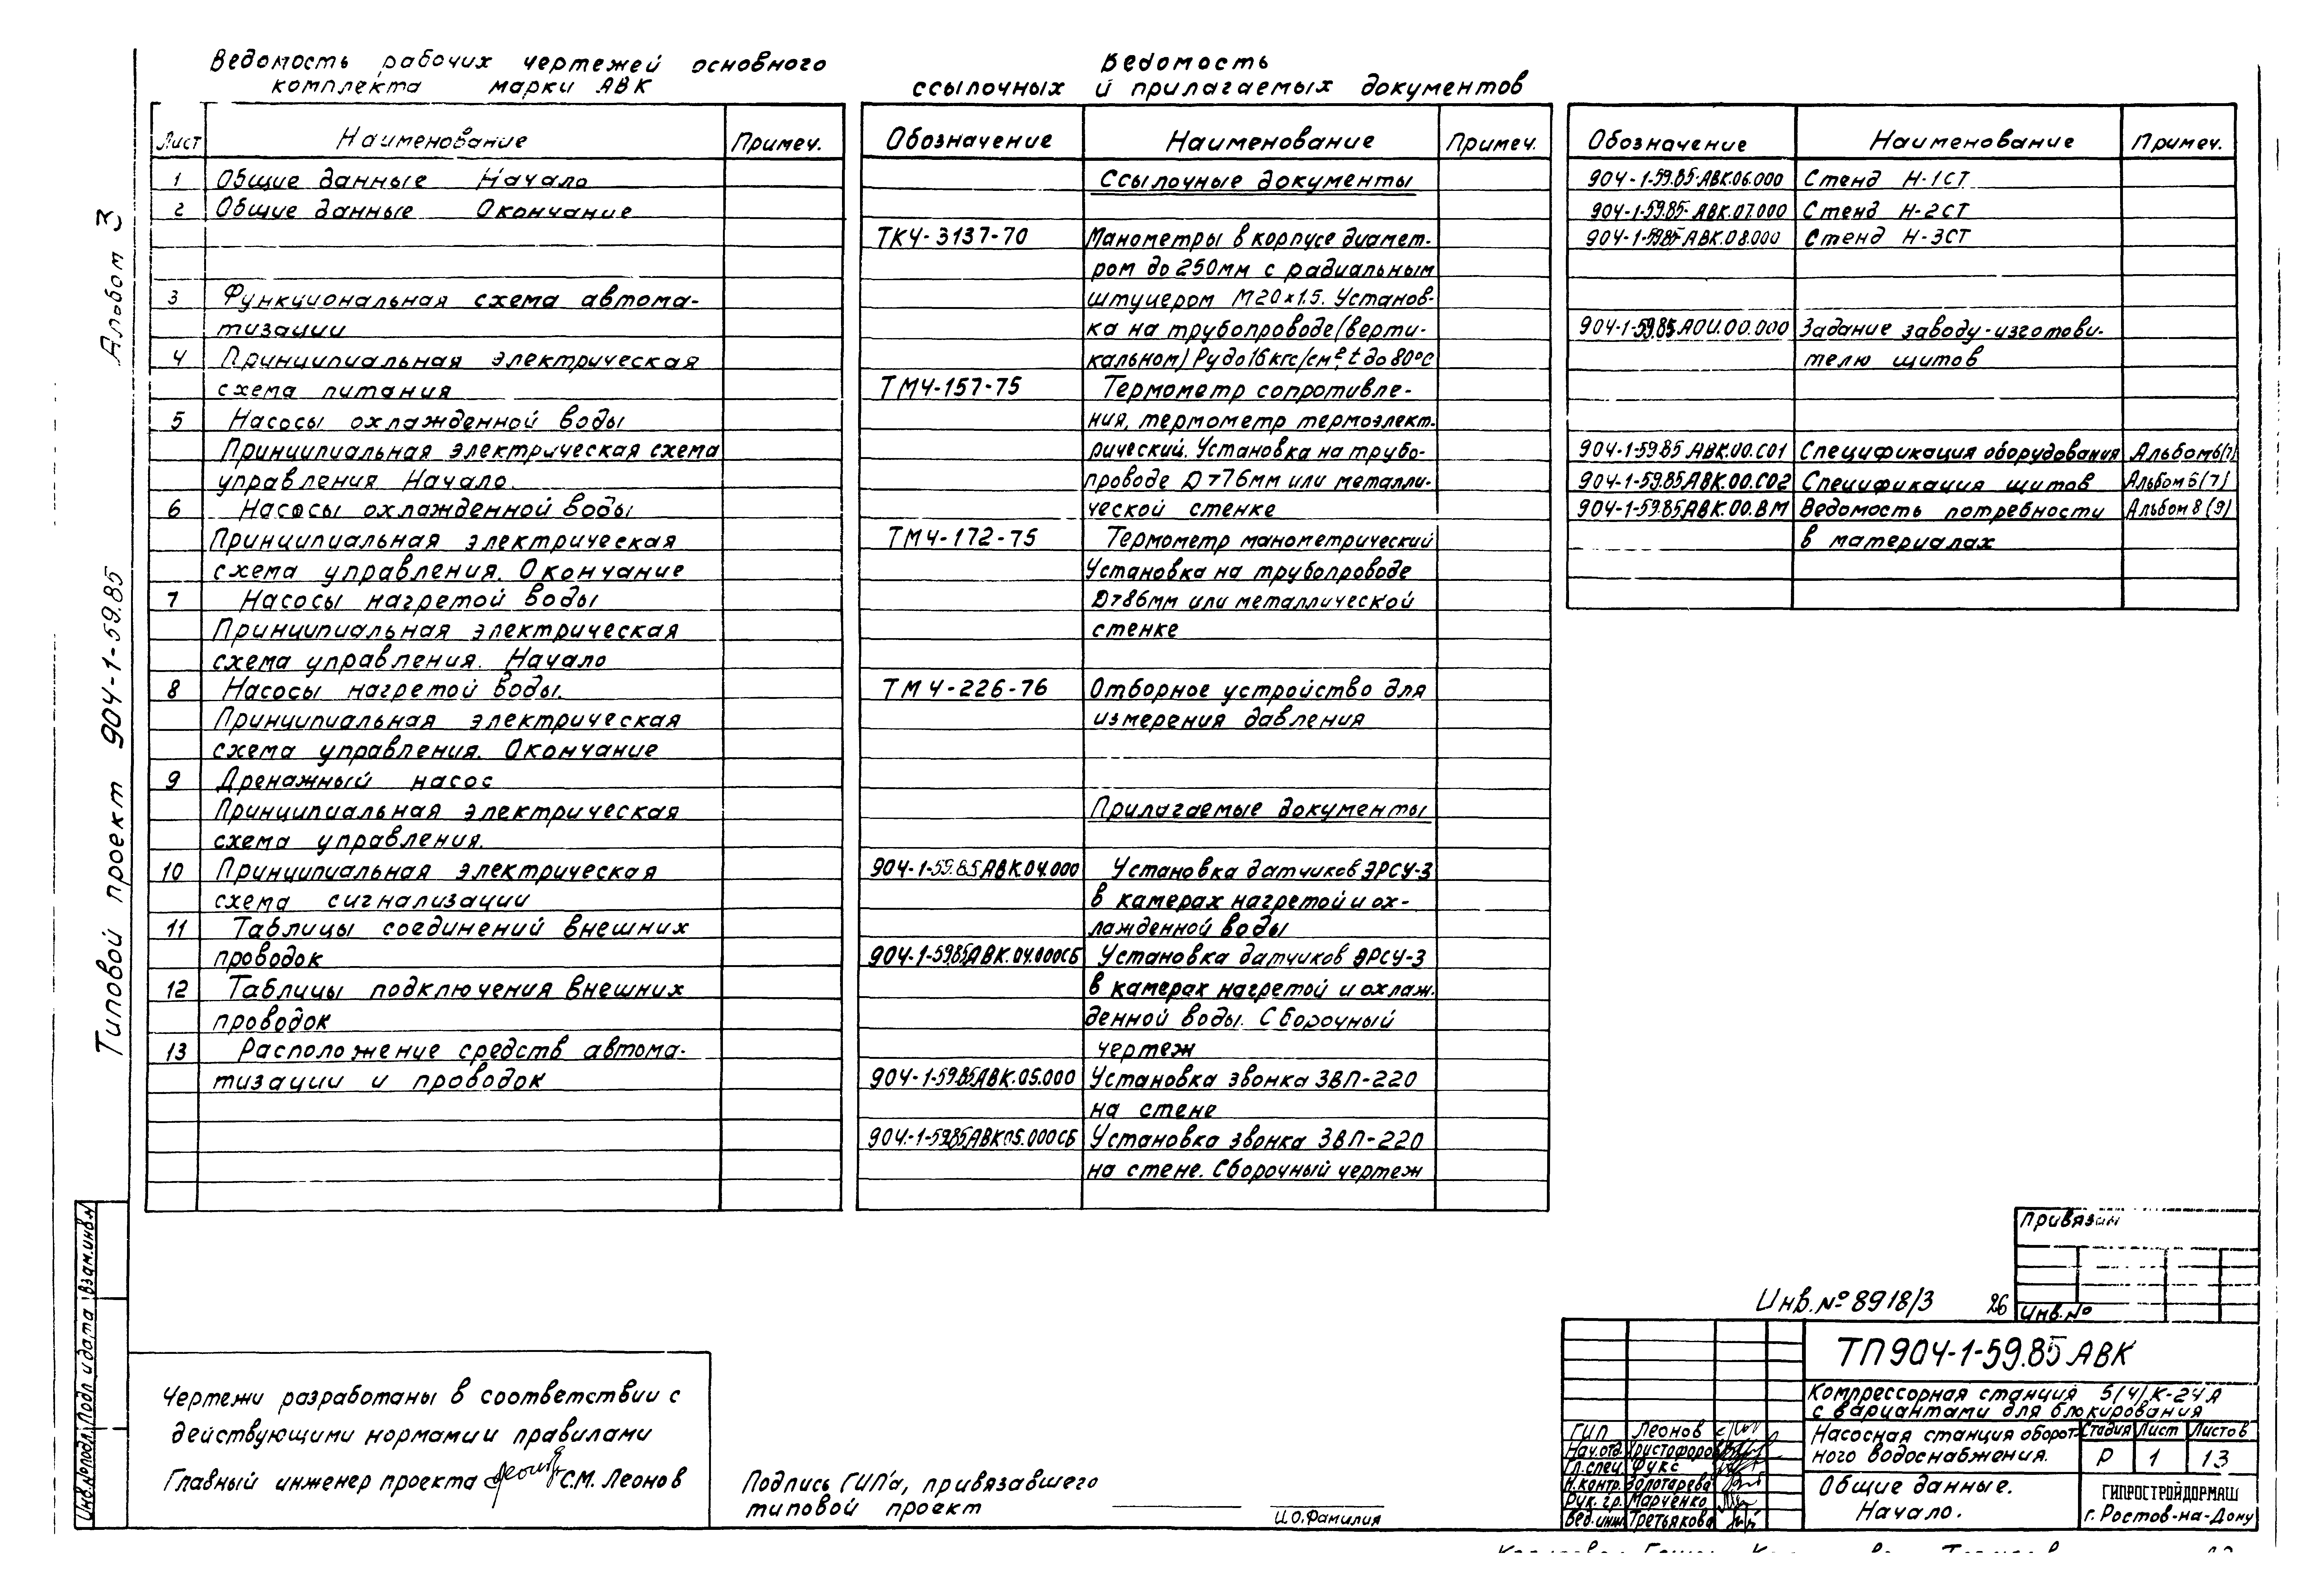 Ведомость рабочих чертежей основного
комплекта марки АВК
Лист Наименование Примеч.
1 Общие данные Начало
2 Общие данные Окончание
3 Функциональная схема автома-
тизации
4 Принципиальная электрическая
схема питания
5 Насосы охлажденной воды
Принципиальная электрическая схема
управления Начало.
6 Насосы охлажденной воды
Принципиальная электрическая
схема управления. Окончание
7 Насосы нагретой воды
Принципиальная электрическая
схема управления. Начало
8 Насосы нагретой воды.
Принципиальная электрическая
схема управления. Окончание
9 Дренажный насос
Принципиальная электрическая
схема управления.
10 Принципиальная электрическая
схема сигнализации
11 Таблицы соединений внешних
проводок
12 Таблицы подключения внешних
проводок
13 Расположение средств автома-
тизации и проводок
Ведомость
ссылочных и прилагаемых документов
Обозначение Наименование Примеч.
Ссылочные документы
ТК4-3137-70 Манометры в корпусе диамет-
ром до 250мм с радиальным
штуцером М20×1.5. Установ-
ка на трубопроводе (верти-
кальном) Ру до 16 кгс/см², t до 80°С
ТМ4-157-75 Термометр сопротивле-
ния, термометр термоэлект-
рический. Установка на трубо-
проводе D>76мм или металли-
ческой стенке
ТМ4-172-75 Термометр манометрический
Установка на трубопроводе
D>86мм или металлической
стенке
ТМ4-226-76 Отборное устройство для
измерения давления
Прилагаемые документы
904-1-59.85 АВК.04.000 Установка датчиков ЭРСУ-3
в камерах нагретой и ох-
лажденной воды
904-1-59.85 АВК.04.000СБ Установка датчиков ЭРСУ-3
в камерах нагретой и охлаж-
денной воды. Сборочный
чертеж
904-1-59.85 АВК.05.000 Установка звонка ЗВП-220
на стене
904-1-59.85 АВК 05.000СБ Установка звонка ЗВП-220
на стене. Сборочный чертеж
Обозначение Наименование Примеч.
904-1-59.85-АВК.06.000 Стенд Н-1СТ
904-1-59.85-АВК.07.000 Стенд Н-2СТ
904-1-59.85 АВК.08.000 Стенд Н-3СТ
904-1-59.85 АОИ.00.000 Задание заводу-изготови-
телю щитов
904-1-59.85 АВК.00.С01 Спецификация оборудования Альбом 6(7)
904-1-59.85 АВК.00.С02 Спецификация щитов Альбом 6(7)
904-1-59.85 АВК.00.ВМ Ведомость потребности Альбом 8(9)
в материалах
Типовой проект 904-1-59.85 Альбом 3
Инв.№подл. Подп и дата Взам.инв.№
Чертежи разработаны в соответствии с
действующими нормами и правилами
Главный инженер проекта С.М. Леонов
Подпись ГИП'а, привязавшего
типовой проект
И.О.Фамилия
Привязан
Инв.№
Инв.№ 8918/3 26
ТП904-1-59.85 АВК
Компрессорная станция 5(4)К-24А
с вариантами для блокирования
ГИП Леонов
Нач.отд. Христофоров
Гл.спец. Фукс
Н.контр. Золотарева
Рук. гр. Марченко
Вед.инж Третьякова
Насосная станция оборот-
ного водоснабжения.
Стадия Лист Листов
Р 1 13
Общие данные.
Начало.
ГИПРОСТРОЙДОРМАШ
г. Ростов-на-Дону